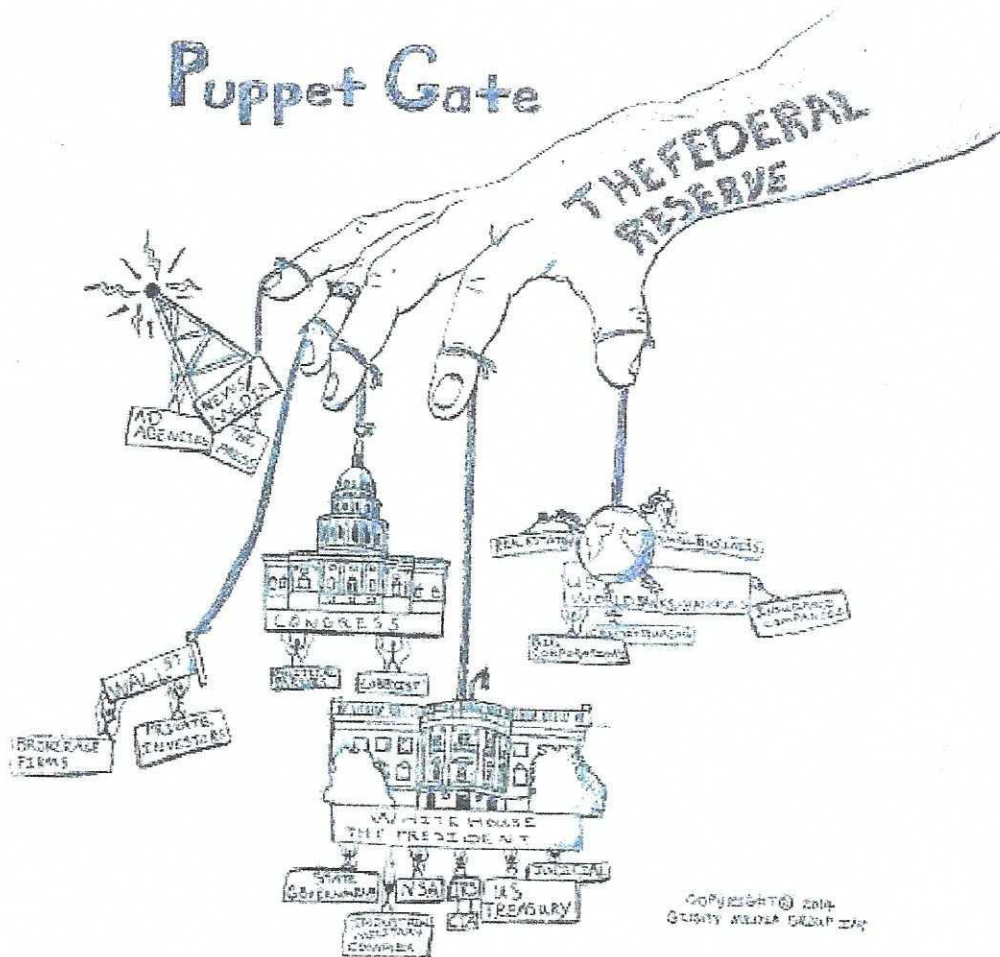 Puppet Gate
THE FEDERAL
RESERVE
NEWS
MEDIA
AD
AGENCIES
THE
PRESS
CONGRESS
LOBBYIST
WALL ST
BROKERAGE
FIRMS
PRIVATE
INVESTORS
REAL ESTATE
SMALL BUSINESS
WORLD BANKS
INSURANCE
COMPANIES
BIG
CORPORATIONS
WHITE HOUSE
THE PRESIDENT
STATE
GOVERNMENT
NSA
IRS
CIA
US
TREASURY
JUDICIAL
INDUSTRIAL
MILITARY
COMPLEX
COPYRIGHT © 2014
MEDIA GROUP